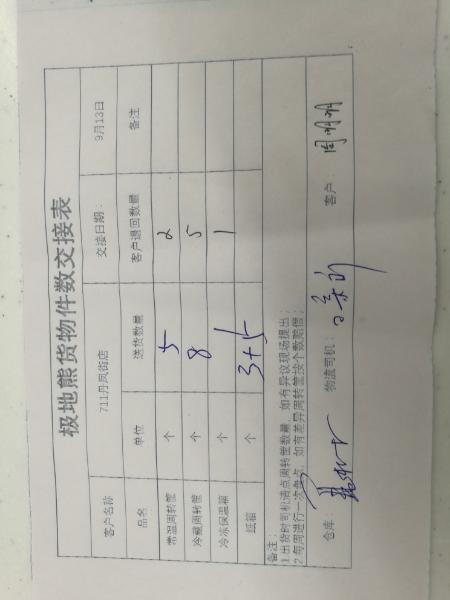 极地熊货物件数交接表
客户名称 711丹凤街店 交接日期: 9月13日
品名 单位 送货数量 客户退回数量 备注
常温周转筐 个 5 2
冷藏周转筐 个 8 5
冷冻保温箱 个 1
纸箱 个 3+5
备注:
1.出货时司机清点周转筐数量,如有异议现场提出;
2.每周进行一次盘点,如有差异周转筐按个数赔偿;
仓库: 物流司机: 客户: